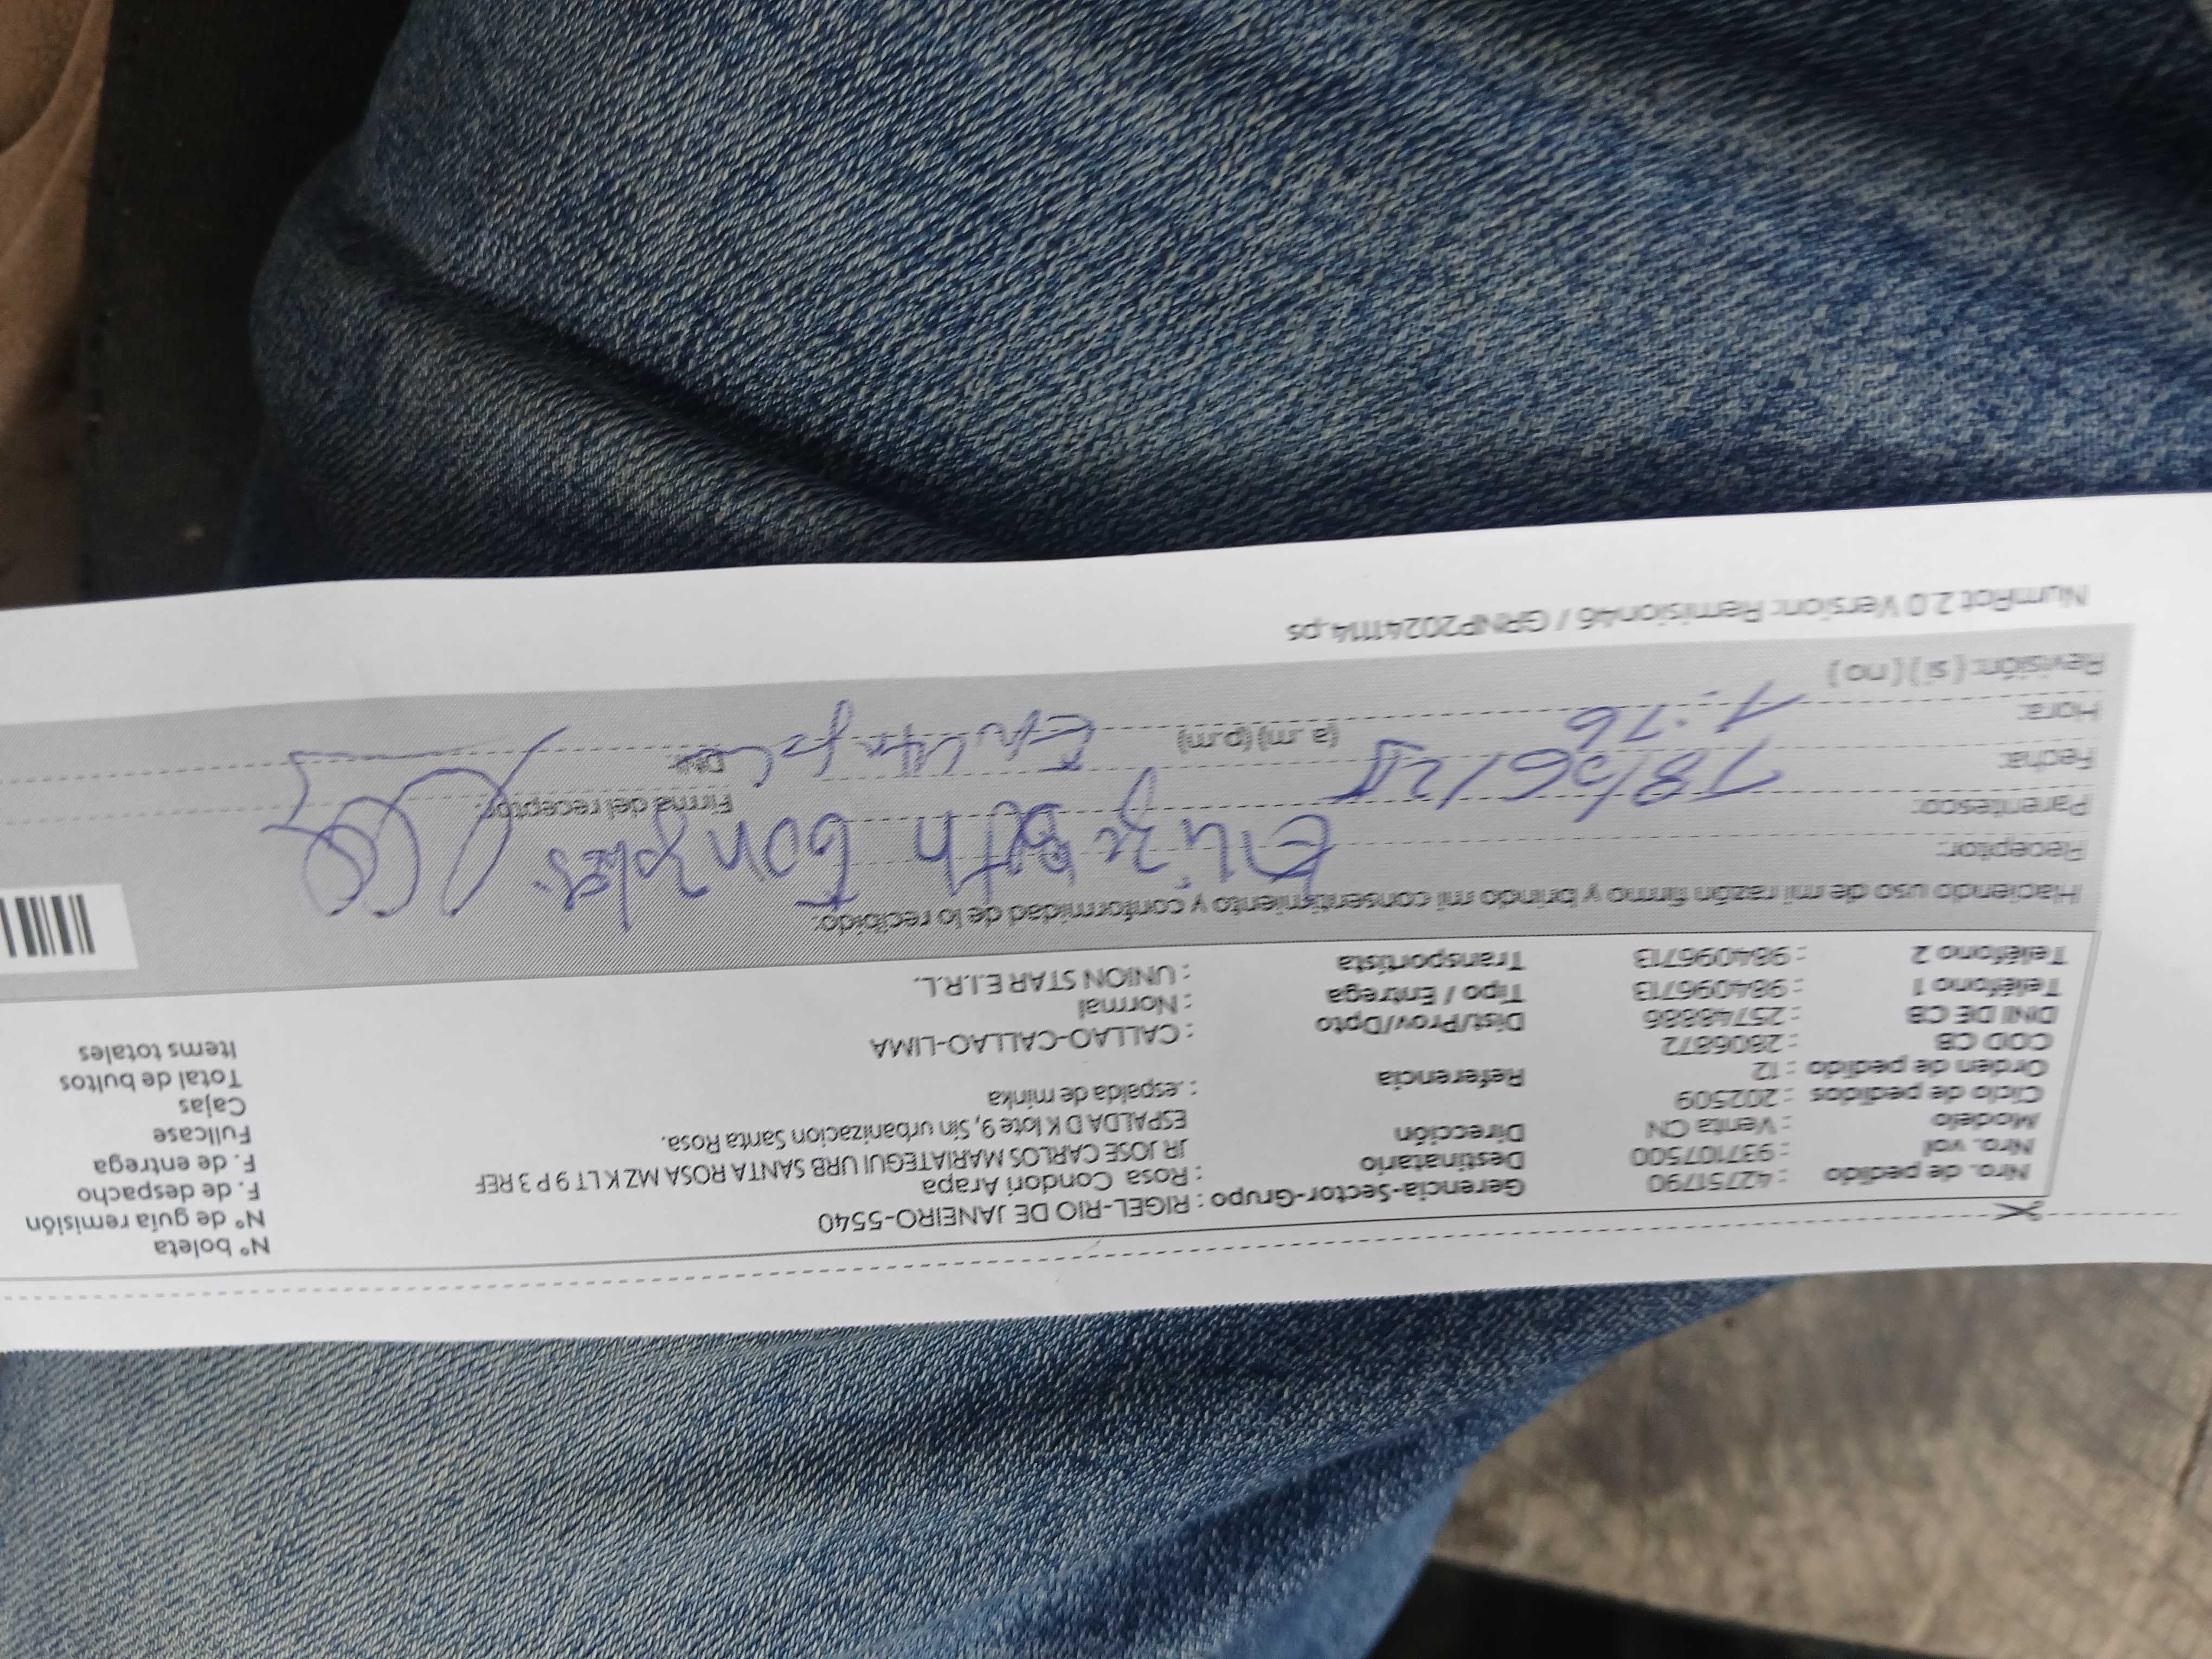 Nº boleta
Gerencia-Sector-Grupo : RIGEL-RIO DE JANEIRO-5540
Nº de guía remisión
Nro. de pedido : 42751790
Destinatario : Rosa Condori Arapa
F. de despacho
Nro. val : 937107500
Dirección JR JOSE CARLOS MARIATEGUI URB SANTA ROSA MZ K LT 9 P 3 REF
ESPALDA D K lote 9, Sin urbanizacion Santa Rosa.
F. de entrega
Modelo : Venta CN
Fullcase
Ciclo de pedidos : 202509
Referencia : .espalda de minka
Cajas
Orden de pedido : 12
Total de bultos
COD CB : 2806872
Dist/Prov/Dpto : CALLAO-CALLAO-LIMA
Items totales
DNI DE CB : 25748886
Tipo / Entrega : Normal
Teléfono 1 : 984096713
Transportista : UNION STAR E.I.R.L.
Teléfono 2 : 984096713
Haciendo uso de mi razón firmo y brindo mi consentimiento y conformidad de lo recibido:
Receptor: Elizabeth Gonzales
Parentesco:
Firma del receptor:
Fecha: 18/06/25
DNI:
Hora: 1:16 (a.m) (p.m)
Revisión: ( si ) ( no )
NumRot 2.0 Version: Remision46 / GRNP20241114.ps